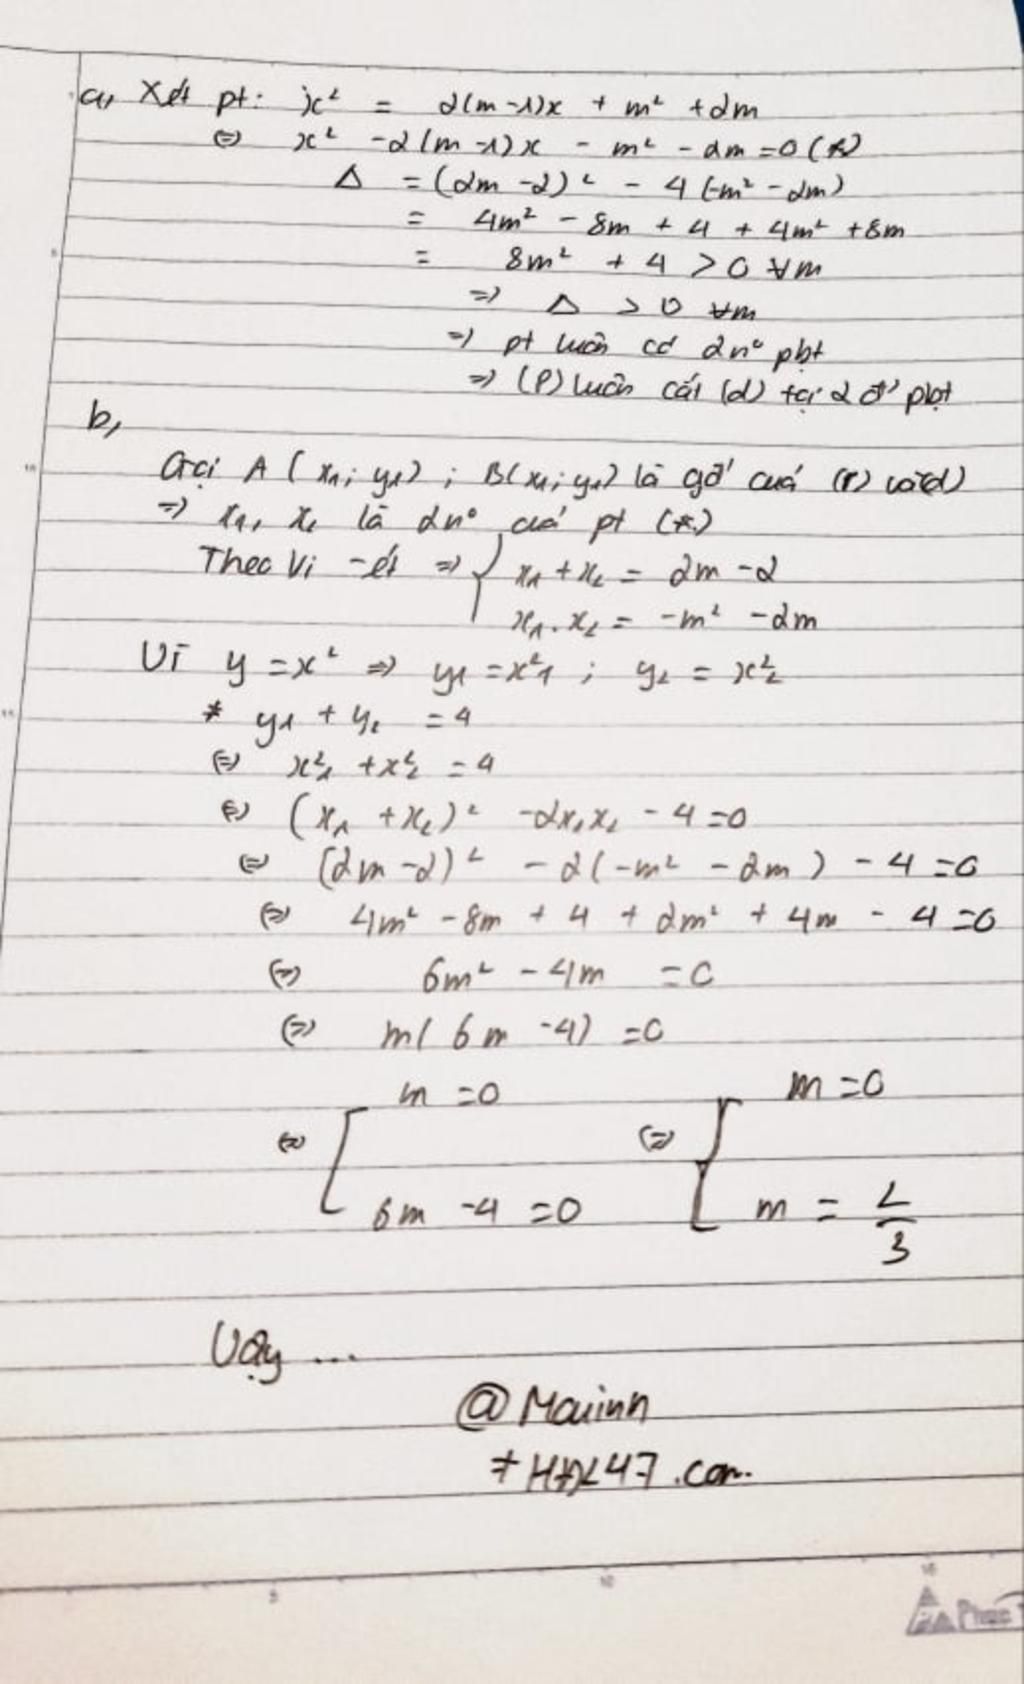 a, Xét pt: x² = 2(m-1)x + m² + 2m
⇔ x² - 2(m-1)x - m² - 2m = 0 (*)
Δ = (2m-2)² - 4(-m² - 2m)
= 4m² - 8m + 4 + 4m² + 8m
= 8m² + 4 > 0 ∀m
=> Δ > 0 ∀m
=> pt luôn có 2n° pbt
=> (P) luôn cắt (d) tại 2 đ' pbt
b,
Gọi A(x₁; y₁) ; B(x₂; y₂) là gđ' của (P) và (d)
=> x₁, x₂ là 2n° của pt (*)
Theo Vi-ét => { x₁ + x₂ = 2m - 2
x₁ . x₂ = -m² - 2m
Vì y = x² => y₁ = x₁² ; y₂ = x₂²
* y₁ + y₂ = 4
⇔ x₁² + x₂² = 4
⇔ (x₁ + x₂)² - 2x₁x₂ - 4 = 0
⇔ (2m - 2)² - 2(-m² - 2m) - 4 = 0
⇔ 4m² - 8m + 4 + 2m² + 4m - 4 = 0
⇔ 6m² - 4m = 0
⇔ m(6m - 4) = 0
⇔ [ m = 0 ⇔ [ m = 0
6m - 4 = 0 m = 2/3
Vậy ...
@Mouinn